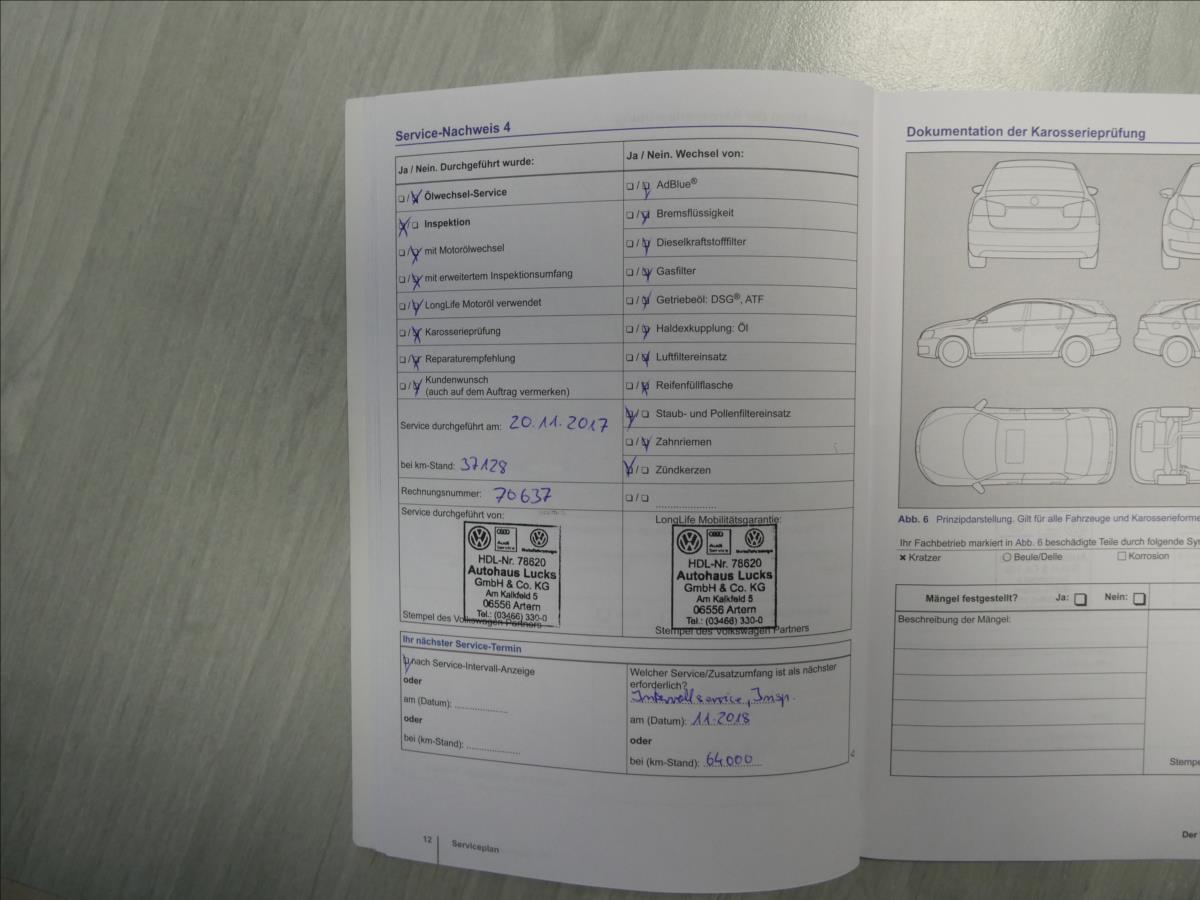 Service-Nachweis 4
Ja / Nein. Durchgeführt wurde:
❏ / ❏ Ölwechsel-Service
❏ / ❏ Inspektion
❏ / ❏ mit Motorölwechsel
❏ / ❏ mit erweitertem Inspektionsumfang
❏ / ❏ LongLife Motoröl verwendet
❏ / ❏ Karosserieprüfung
❏ / ❏ Reparaturempfehlung
❏ / ❏ Kundenwunsch
(auch auf dem Auftrag vermerken)
Service durchgeführt am: 20.11.2017
bei km-Stand: 37128
Rechnungsnummer: 70637
Ja / Nein. Wechsel von:
❏ / ❏ AdBlue®
❏ / ❏ Bremsflüssigkeit
❏ / ❏ Dieselkraftstofffilter
❏ / ❏ Gasfilter
❏ / ❏ Getriebeöl: DSG®, ATF
❏ / ❏ Haldexkupplung: Öl
❏ / ❏ Luftfiltereinsatz
❏ / ❏ Reifenfüllflasche
❏ / ❏ Staub- und Pollenfiltereinsatz
❏ / ❏ Zahnriemen
❏ / ❏ Zündkerzen
❏ / ❏ ....................
Service durchgeführt von:
Audi
Service
Nutzfahrzeuge
HDL-Nr. 78620
Autohaus Lucks
GmbH & Co. KG
Am Kalkfeld 5
06556 Artern
Tel.: (03466) 330-0
Stempel des Volkswagen Partners
LongLife Mobilitätsgarantie:
Audi
Service
Nutzfahrzeuge
HDL-Nr. 78620
Autohaus Lucks
GmbH & Co. KG
Am Kalkfeld 5
06556 Artern
Tel.: (03466) 330-0
Stempel des Volkswagen Partners
Ihr nächster Service-Termin
nach Service-Intervall-Anzeige
oder
am (Datum): ....................
oder
bei (km-Stand): ....................
Welcher Service/Zusatzumfang ist als nächster
erforderlich?
Intervallservice, Insp.
am (Datum): 11.2018
oder
bei (km-Stand): 64000
12 Serviceplan
Dokumentation der Karosserieprüfung
Abb. 6 Prinzipdarstellung. Gilt für alle Fahrzeuge und Karosserieforme
Ihr Fachbetrieb markiert in Abb. 6 beschädigte Teile durch folgende Sy
✖ Kratzer ❍ Beule/Delle ☐ Korrosion
Mängel festgestellt? Ja: ❏ Nein: ❏
Beschreibung der Mängel:
Stempe
Der